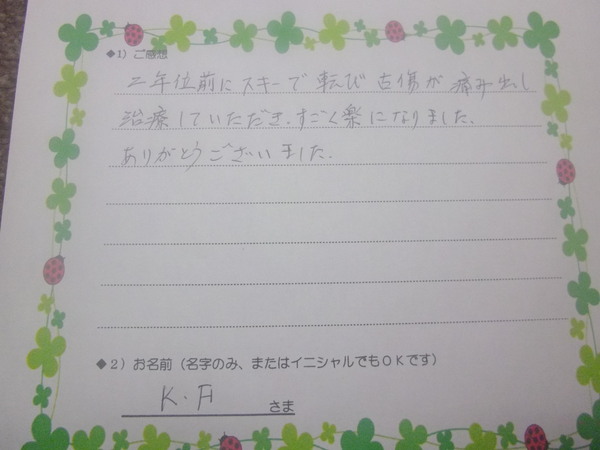 ◆1）ご感想
二年位前にスキーで転び古傷が痛み出し
治療していただき.すごく楽になりました.
ありがとうございました.
◆2）お名前（名字のみ、またはイニシャルでもOKです）
K.A さま